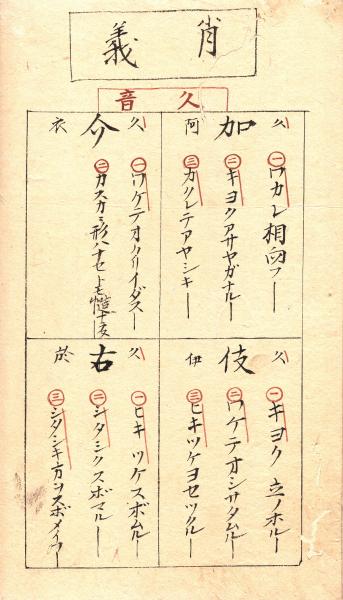 肖義
久音
久 加 阿
㊀ワカレ相向フ
㊁キヨクアサヤガナル
㊂カクレテアヤシキ
久 介 衣
㊀ワケテオクリイダス
㊁カスカニ形ハナセトモ
久 伎 伊
㊀キヨク立ノホル
㊁ワケテオシサタムル
㊂ヒキツケヨセツクル
久 右 於
㊀ヒキツケスボムル
㊁シタシクスボマル
㊂シタシキ方ヲスボメイフ